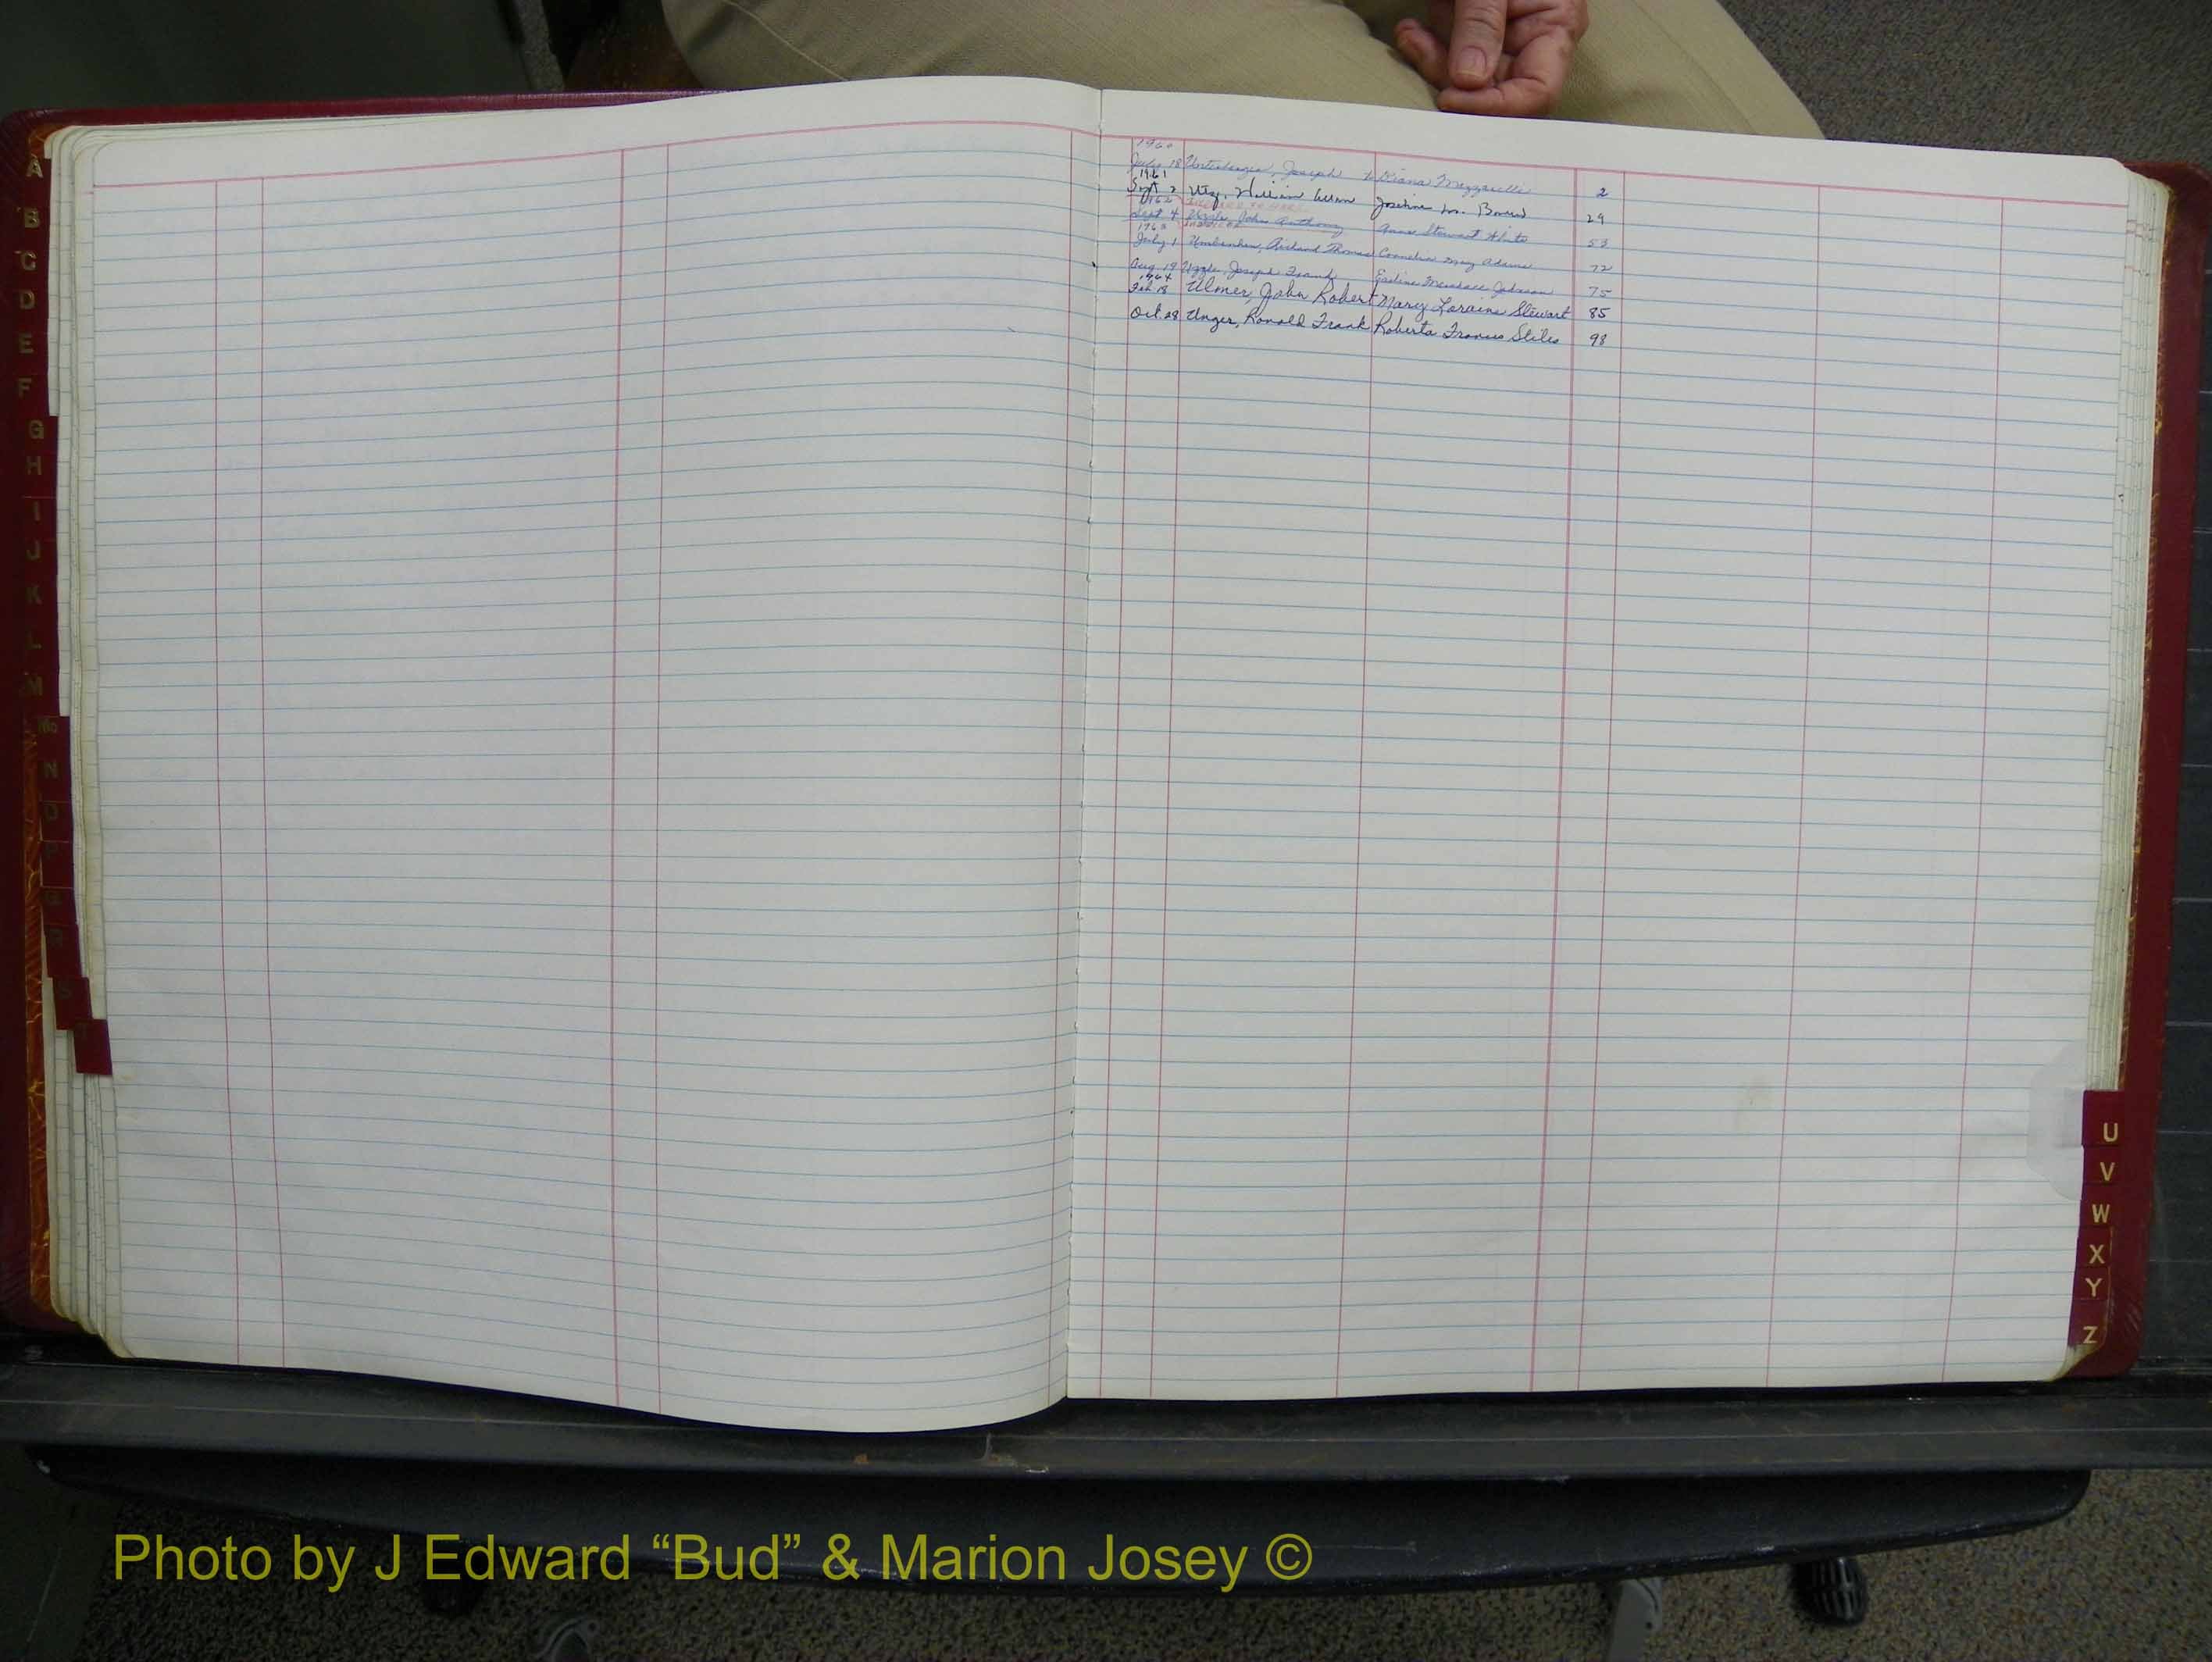 A
B
C
D
E
F
G
H
I
J
K
L
M
Mc
N
O
P
Q
R
S
1960
July 18 Joseph Diana 2
1961
Sept 2 Utz, William Josephine M. 29
1962
Sept 4 Uzzle, John Anthony Anne Stewart White 53
1963
July 1 Richard Thomas Cornelia May Adams 72
Aug 19 Uzzle, Joseph Frank Earline Johnson 75
1964
Feb. 18 Ulmer, John Robert Mary Loraine Stewart 85
Oct. 28 Unger, Ronald Frank Roberta Frances Stiles 98
U
V
W
X
Y
Z
Photo by J Edward “Bud” & Marion Josey ©